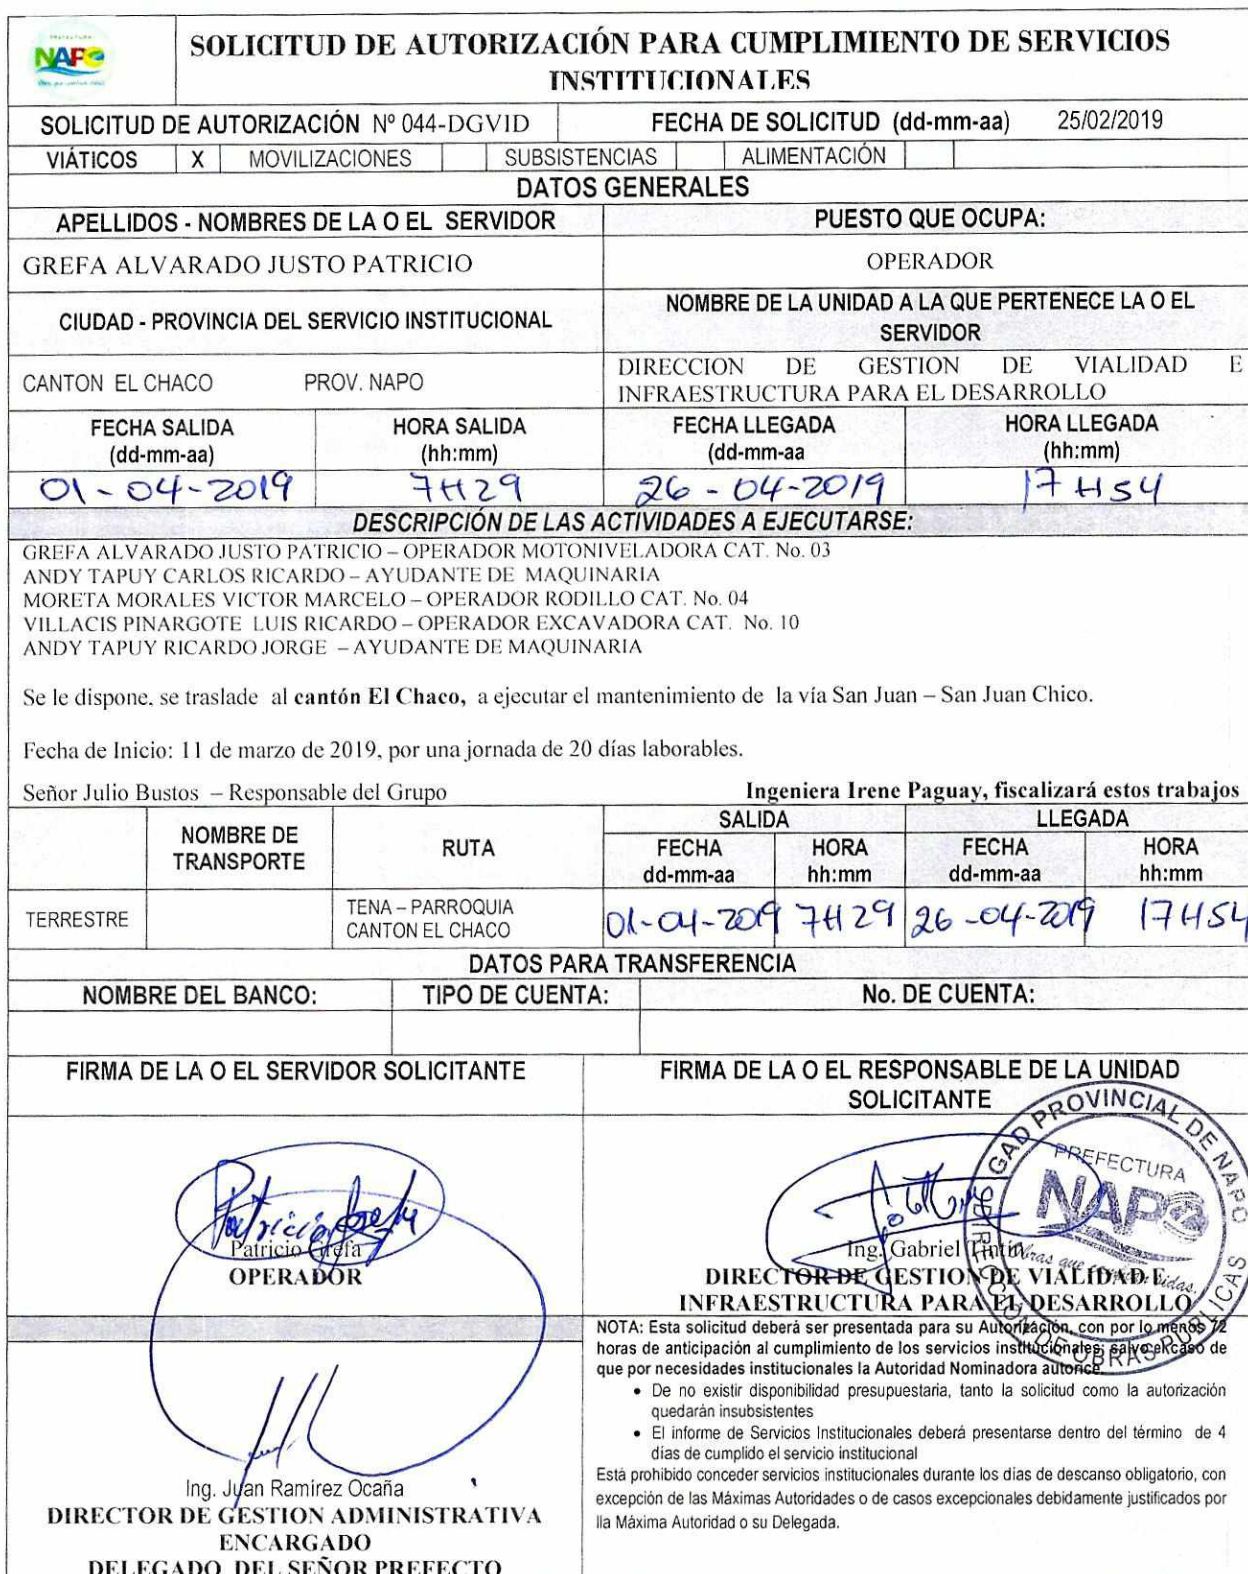 PREFECTURA
NAPO
SOLICITUD DE AUTORIZACIÓN PARA CUMPLIMIENTO DE SERVICIOS
INSTITUCIONALES
SOLICITUD DE AUTORIZACIÓN Nº 044-DGVID FECHA DE SOLICITUD (dd-mm-aa) 25/02/2019
VIÁTICOS X MOVILIZACIONES SUBSISTENCIAS ALIMENTACIÓN
DATOS GENERALES
APELLIDOS - NOMBRES DE LA O EL SERVIDOR PUESTO QUE OCUPA:
GREFA ALVARADO JUSTO PATRICIO OPERADOR
CIUDAD - PROVINCIA DEL SERVICIO INSTITUCIONAL NOMBRE DE LA UNIDAD A LA QUE PERTENECE LA O EL
SERVIDOR
CANTON EL CHACO PROV. NAPO DIRECCION DE GESTION DE VIALIDAD E
INFRAESTRUCTURA PARA EL DESARROLLO
FECHA SALIDA HORA SALIDA FECHA LLEGADA HORA LLEGADA
(dd-mm-aa) (hh:mm) (dd-mm-aa (hh:mm)
01-04-2019 7H29 26-04-2019 17H54
DESCRIPCIÓN DE LAS ACTIVIDADES A EJECUTARSE:
GREFA ALVARADO JUSTO PATRICIO – OPERADOR MOTONIVELADORA CAT. No. 03
ANDY TAPUY CARLOS RICARDO – AYUDANTE DE MAQUINARIA
MORETA MORALES VICTOR MARCELO – OPERADOR RODILLO CAT. No. 04
VILLACIS PINARGOTE LUIS RICARDO – OPERADOR EXCAVADORA CAT. No. 10
ANDY TAPUY RICARDO JORGE – AYUDANTE DE MAQUINARIA
Se le dispone, se traslade al cantón El Chaco, a ejecutar el mantenimiento de la vía San Juan – San Juan Chico.
Fecha de Inicio: 11 de marzo de 2019, por una jornada de 20 días laborables.
Señor Julio Bustos – Responsable del Grupo Ingeniera Irene Paguay, fiscalizará estos trabajos
SALIDA LLEGADA
NOMBRE DE TRANSPORTE RUTA FECHA HORA FECHA HORA
dd-mm-aa hh:mm dd-mm-aa hh:mm
TERRESTRE TENA – PARROQUIA
CANTON EL CHACO 01-04-2019 7H29 26-04-2019 17H54
DATOS PARA TRANSFERENCIA
NOMBRE DEL BANCO: TIPO DE CUENTA: No. DE CUENTA:
FIRMA DE LA O EL SERVIDOR SOLICITANTE FIRMA DE LA O EL RESPONSABLE DE LA UNIDAD
SOLICITANTE
GAD PROVINCIAL DE NAPO
PREFECTURA
NAPO
Obras que cambian vidas.
DIRECCIÓN DE OBRAS PÚBLICAS
Patricio Grefa
Patricio Grefa
OPERADOR
Ing. Gabriel
DIRECTOR DE GESTION DE VIALIDAD E
INFRAESTRUCTURA PARA EL DESARROLLO
NOTA: Esta solicitud deberá ser presentada para su Autorización, con por lo menos 72
horas de anticipación al cumplimiento de los servicios institucionales; salvo el caso de
que por necesidades institucionales la Autoridad Nominadora autorice.
• De no existir disponibilidad presupuestaria, tanto la solicitud como la autorización
quedarán insubsistentes
• El informe de Servicios Institucionales deberá presentarse dentro del término de 4
días de cumplido el servicio institucional
Está prohibido conceder servicios institucionales durante los días de descanso obligatorio, con
excepción de las Máximas Autoridades o de casos excepcionales debidamente justificados por
lla Máxima Autoridad o su Delegada.
Ing. Juan Ramírez Ocaña
DIRECTOR DE GESTION ADMINISTRATIVA
ENCARGADO
DELEGADO DEL SEÑOR PREFECTO